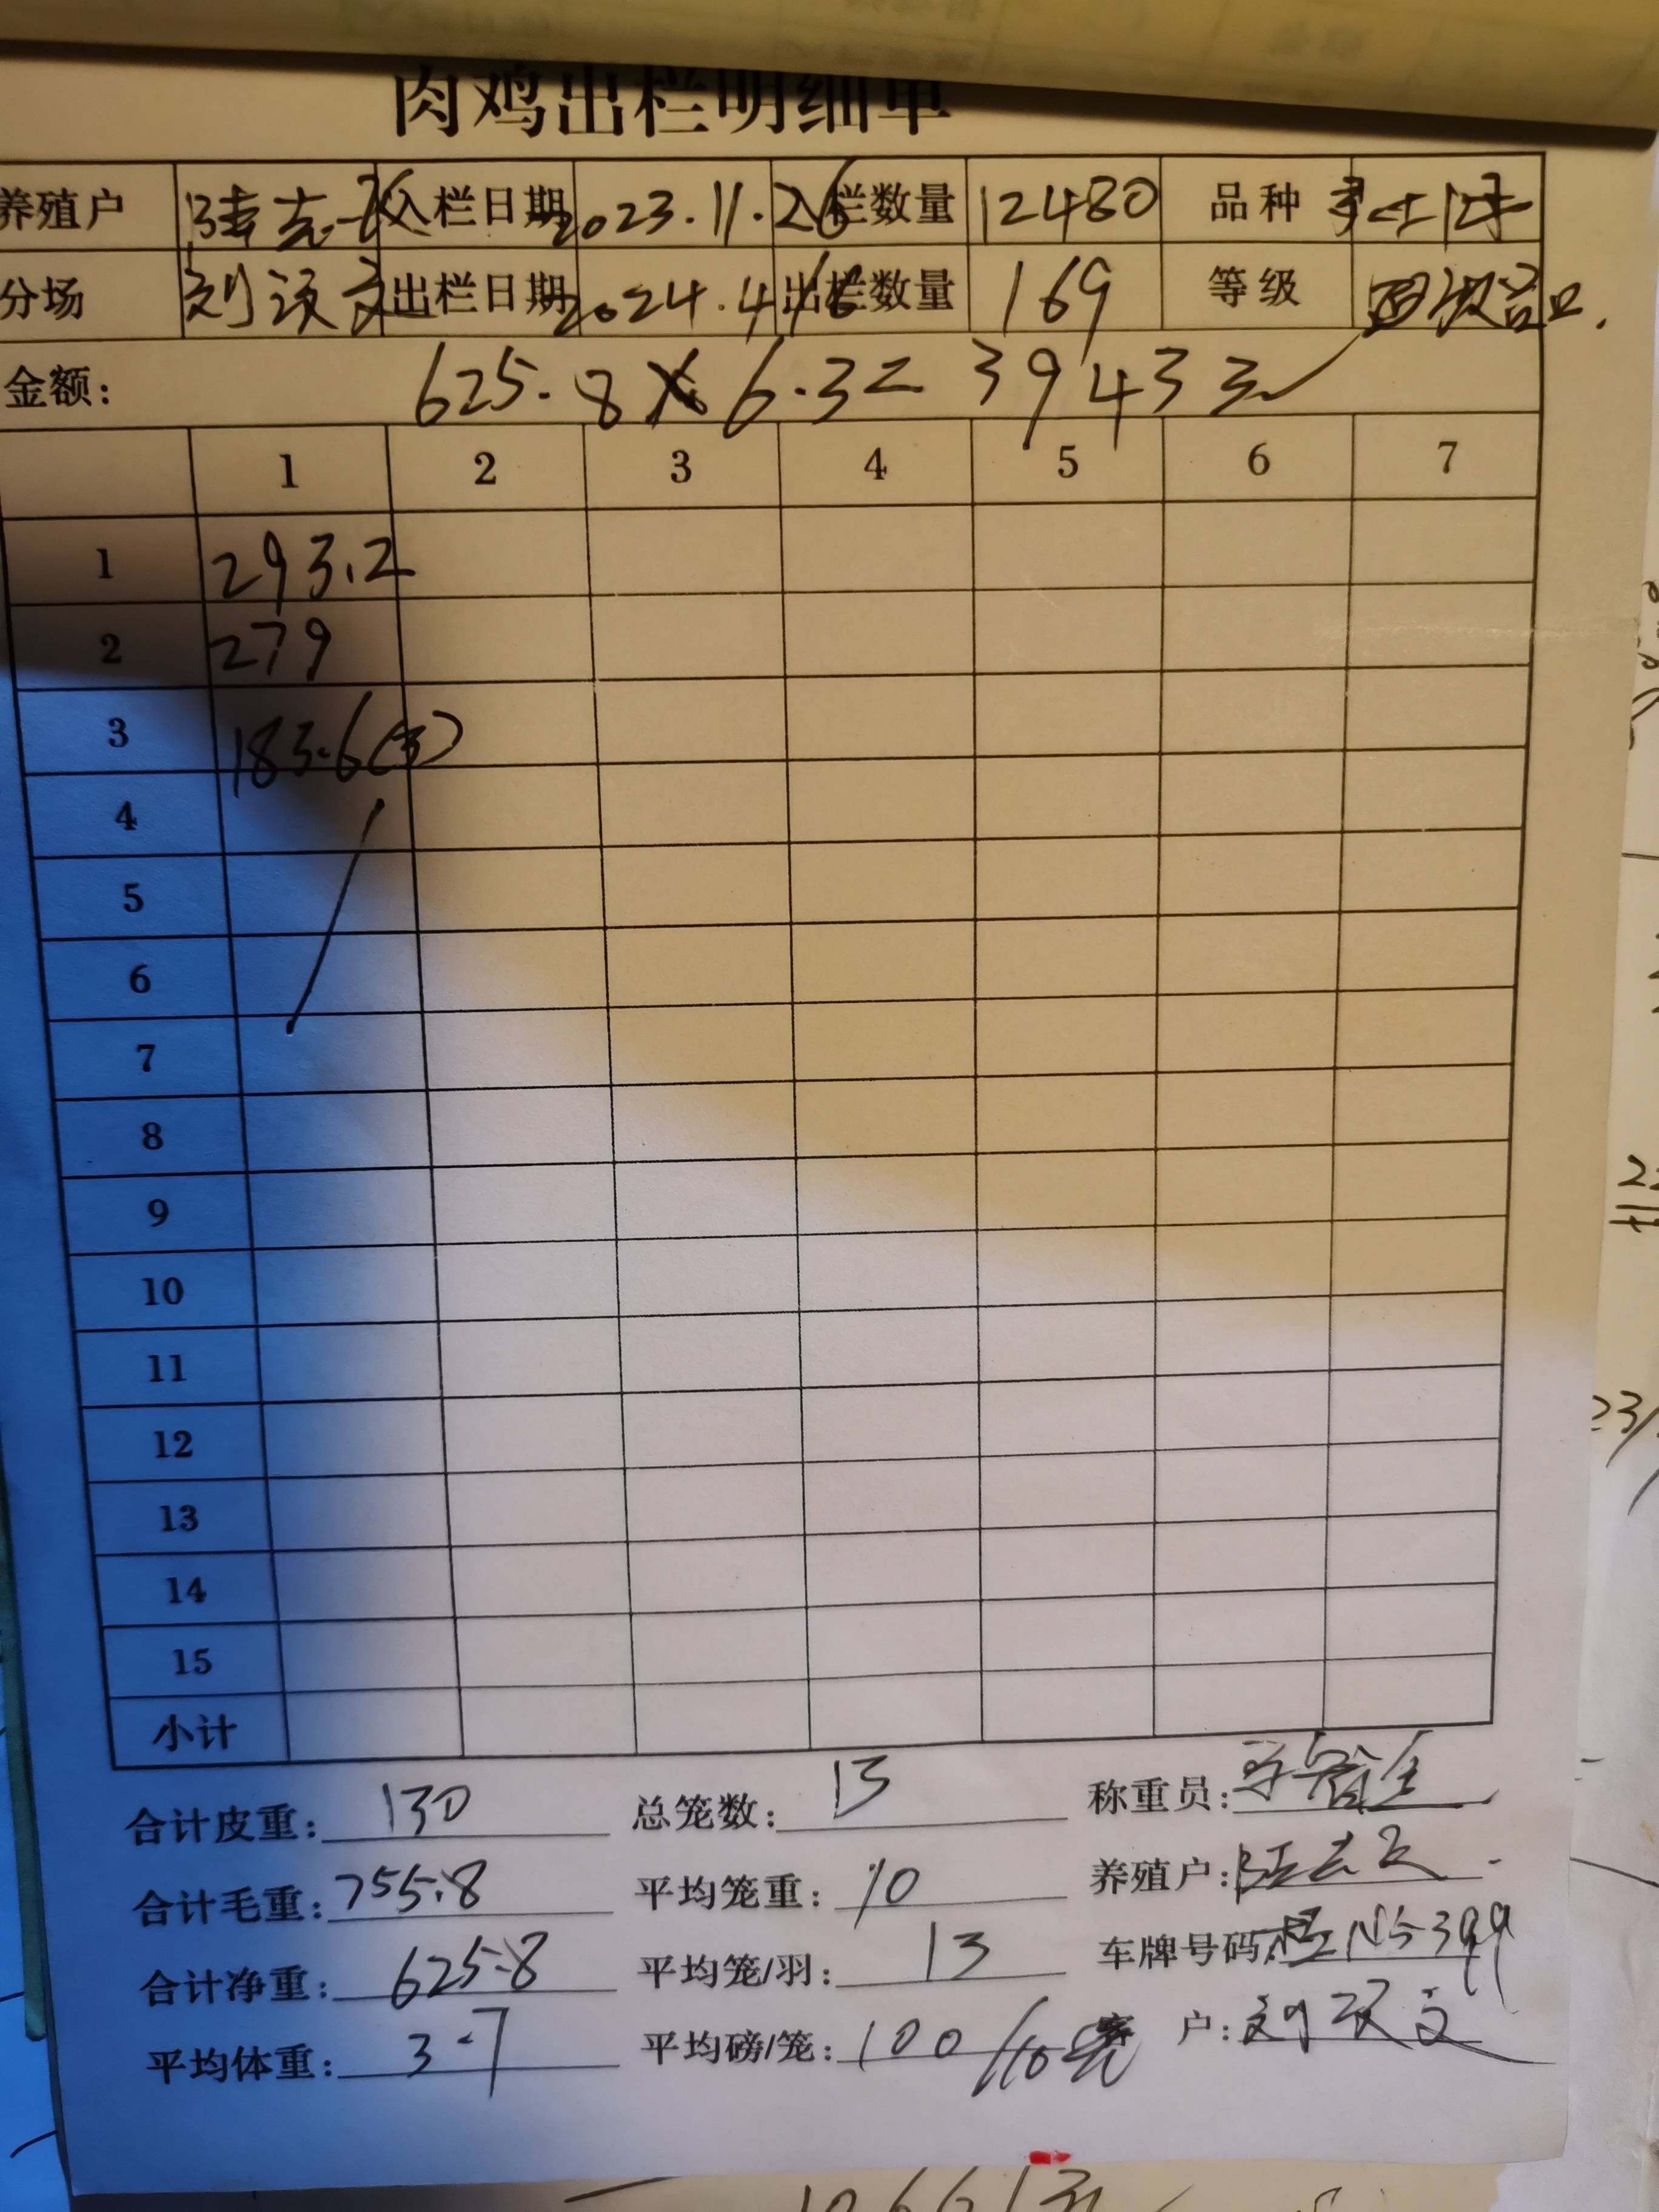 肉鸡出栏明细单
养殖户 入栏日期 2023.11.26 入栏数量 12480 品种
分场 刘汉文 出栏日期 2024.4.16 出栏数量 169 等级
金额: 625.8 × 6.3 = 3943
1 2 3 4 5 6 7
1 293.2
2 279
3 183.6(3)
4
5
6
7
8
9
10
11
12
13
14
15
小计
合计皮重: 130 总笼数: 13 称重员:
合计毛重: 755.8 平均笼重: 10 养殖户:
合计净重: 625.8 平均笼/羽: 13 车牌号码:
平均体重: 3.7 平均磅/笼: 100/10 客户: